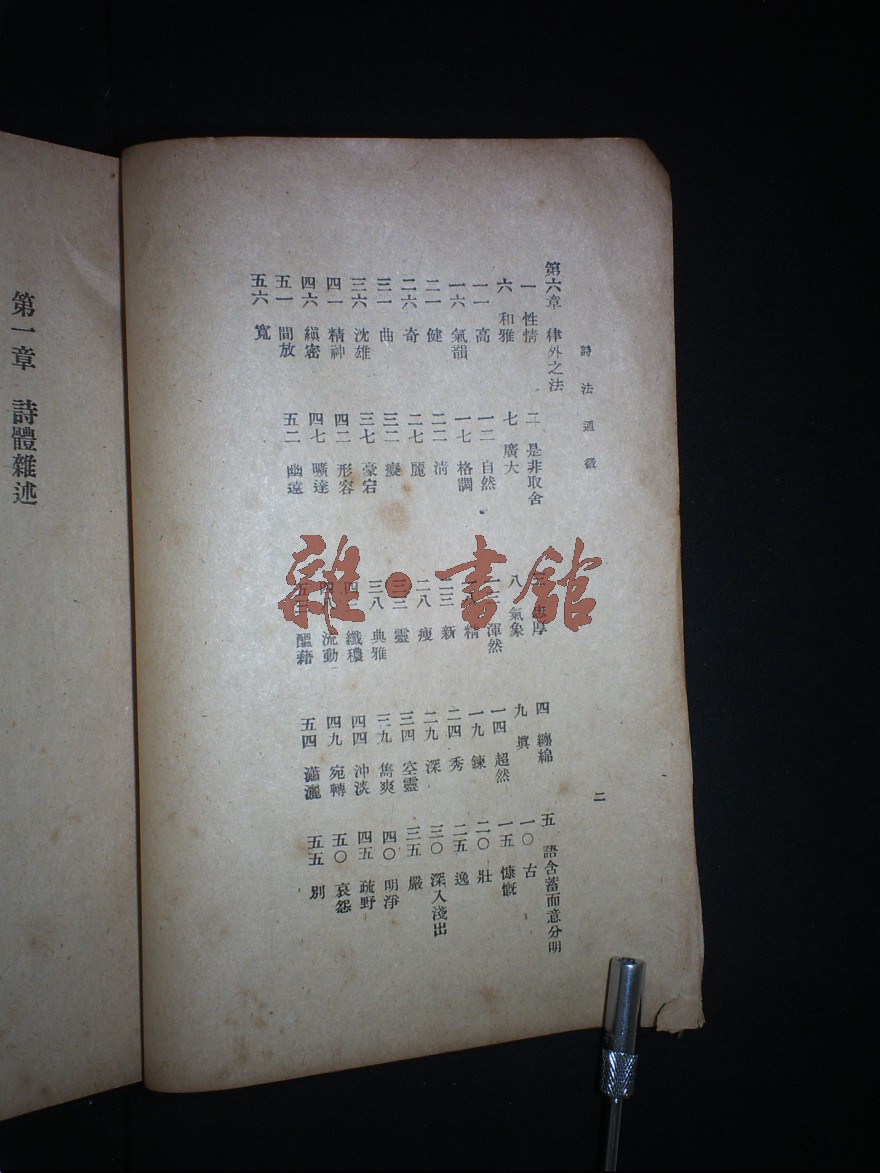 詩法通微
二
第六章 律外之法
一 性情 二 是非取舍 三 厚 四 纏綿 五 語含蓄而意分明
六 和雅 七 廣大 八 氣象 九 眞 一〇 古
一一 高 一二 自然 一三 渾然 一四 超然 一五 慷慨
一六 氣韻 一七 格調 一八 精 一九 鍊 二〇 壯
二一 健 二二 清 二三 新 二四 秀 二五 逸
二六 奇 二七 麗 二八 瘦 二九 深 三〇 深入淺出
三一 曲 三二 癡 三三 靈 三四 空靈 三五 嚴
三六 沈雄 三七 豪宕 三八 典雅 三九 雋爽 四〇 明淨
四一 精神 四二 形容 四三 纖穠 四四 沖淡 四五 疏野
四六 縝密 四七 曠達 四八 流動 四九 宛轉 五〇 哀怨
五一 閒放 五二 幽遠 五三 醞藉 五四 瀟灑 五五 別
五六 寬
第一章 詩體雜述
雜·書館